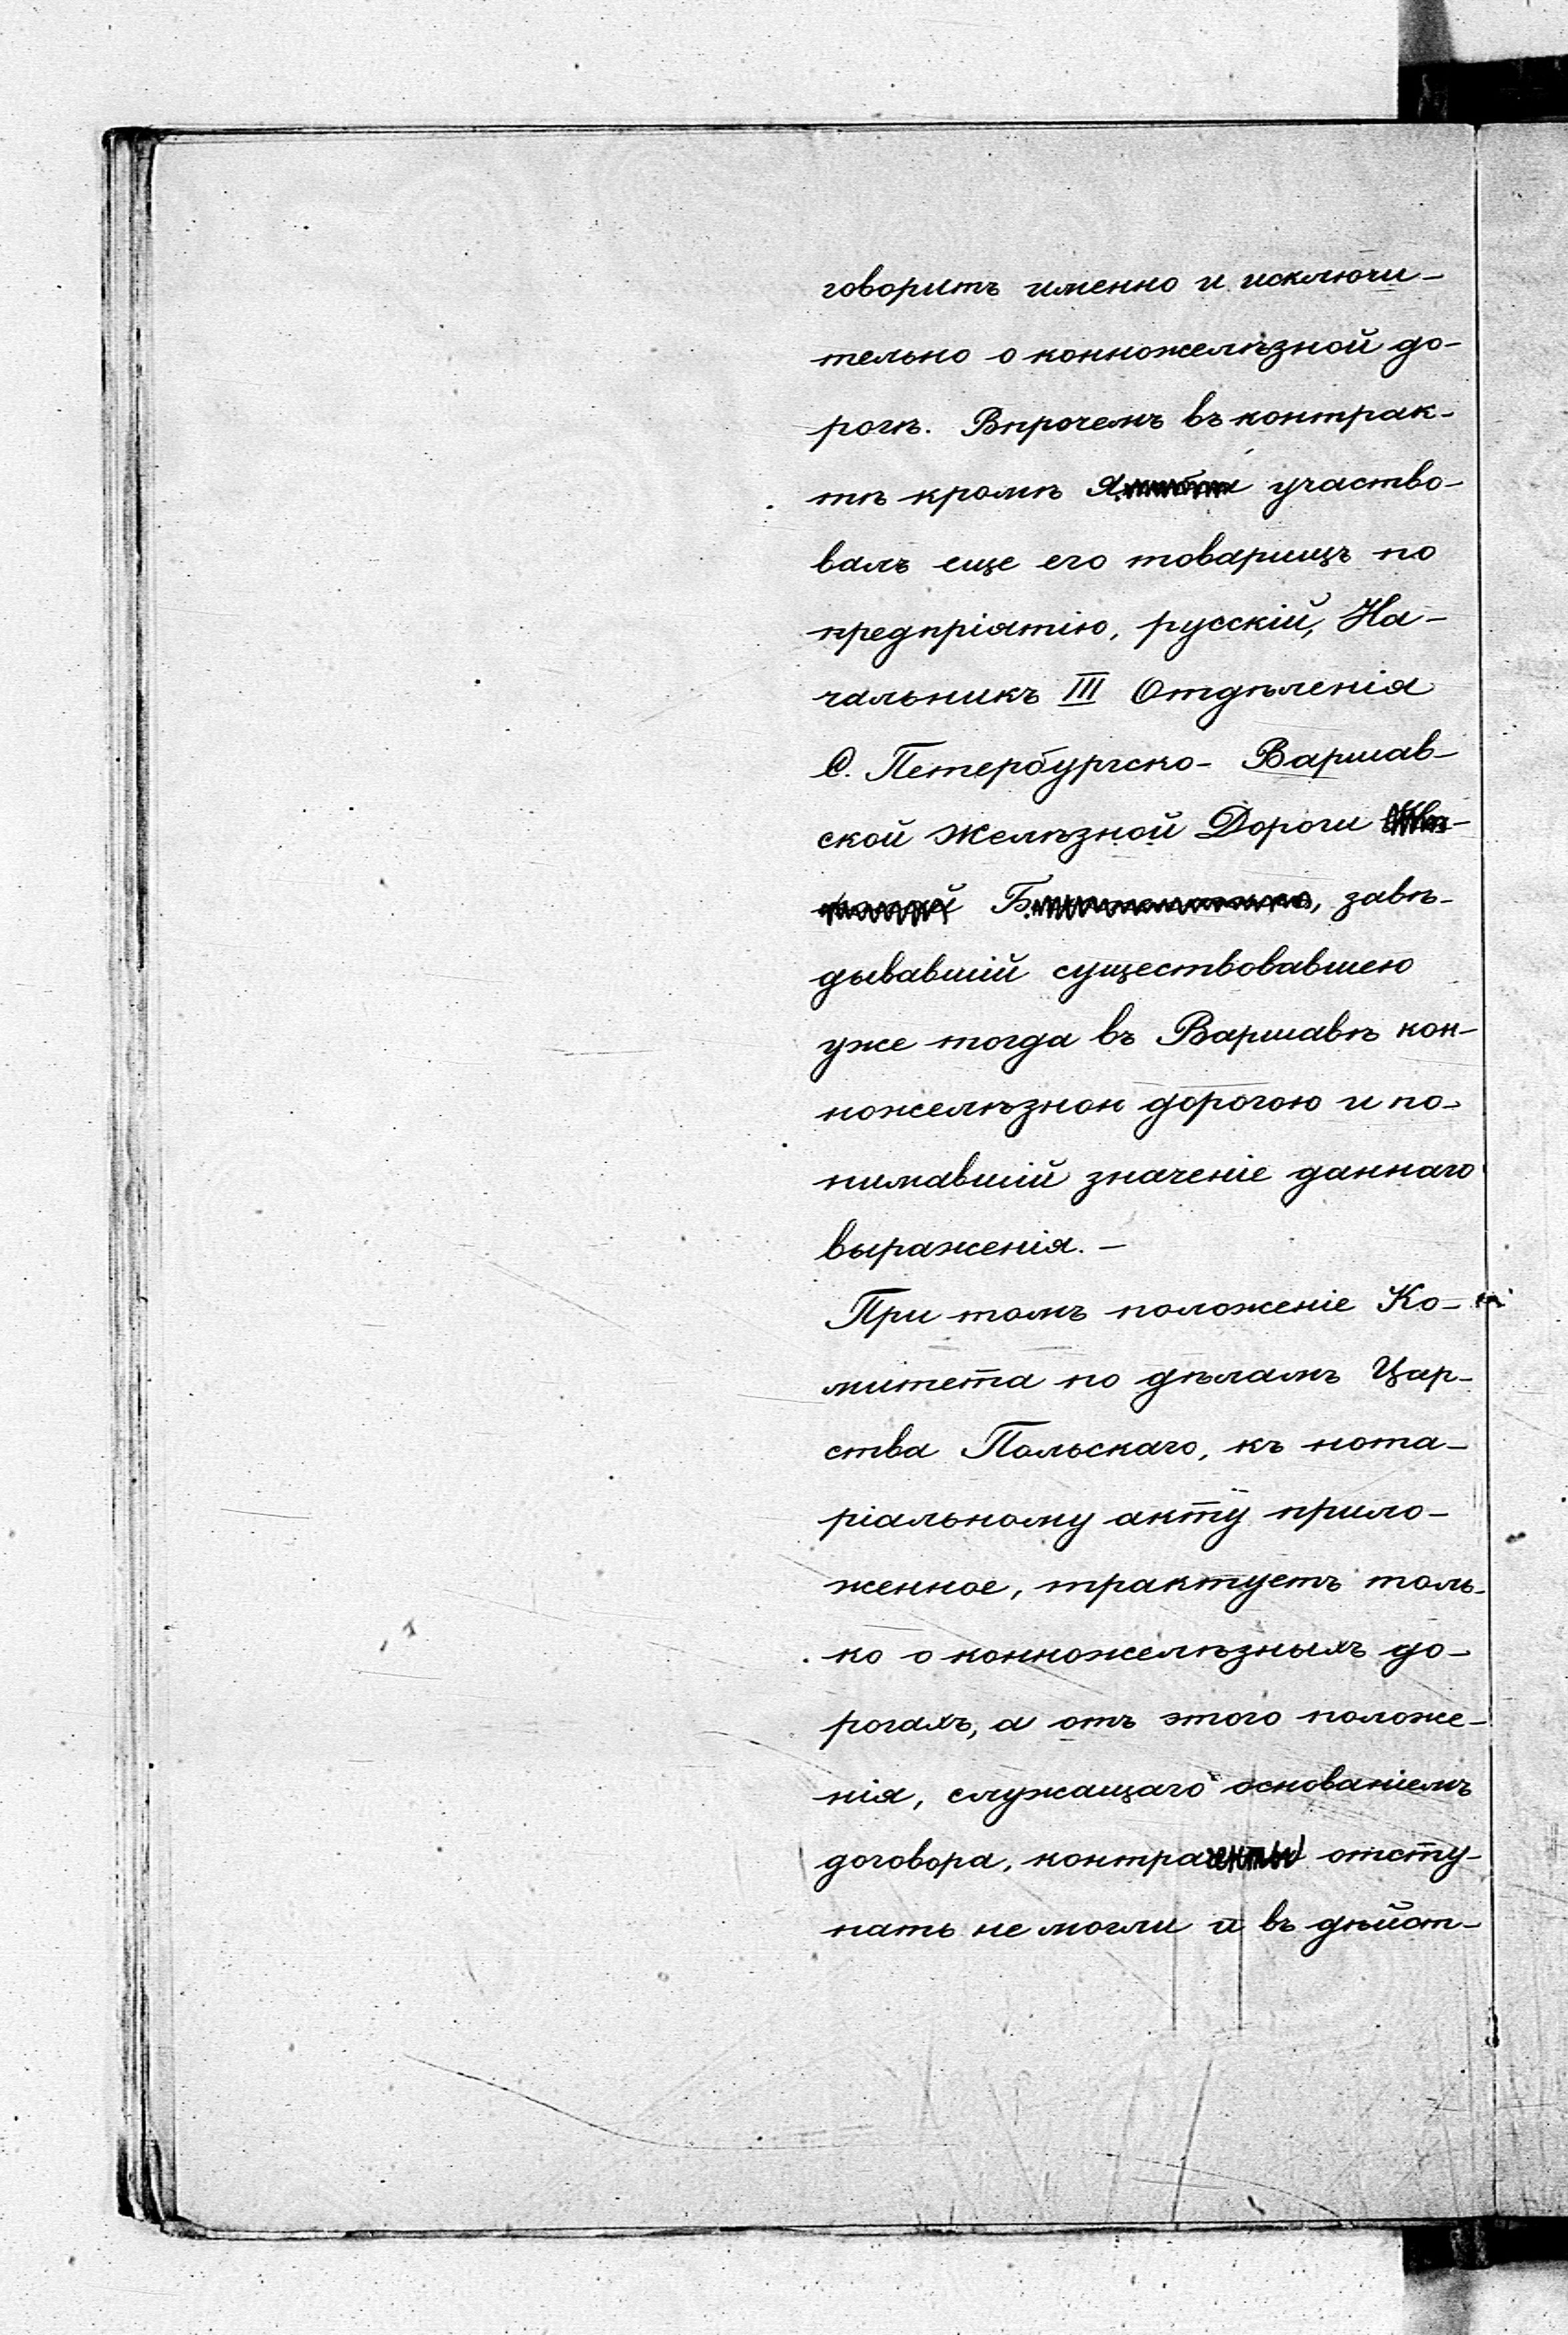 говоритъ именно и исключи-
тельно о конножелѣзной до-
рогѣ. Впрочемъ въ контрак-
тѣ кромѣ участво-
валъ еще его товарищъ по
предпріятію, русскій, На-
чальникъ III Отдѣленія
С. Петербургско- Варшав-
ской Желѣзной Дороги
завѣ-
дывавшій существовавшею
уже тогда въ Варшавѣ кон-
ножелѣзнон дорогою и по-
нимавшій значеніе даннаго
выраженія. —
При томъ положеніе Ко-
митета по дѣламъ Цар-
ства Польскаго, къ нота-
ріальному акту прило-
женное, трактуетъ толь-
ко о конножелѣзныхъ до-
рогахъ, а отъ этого положе-
нія, служащаго основаніемъ
договора, контрагенты отсту-
пать не могли и въ дѣйст-